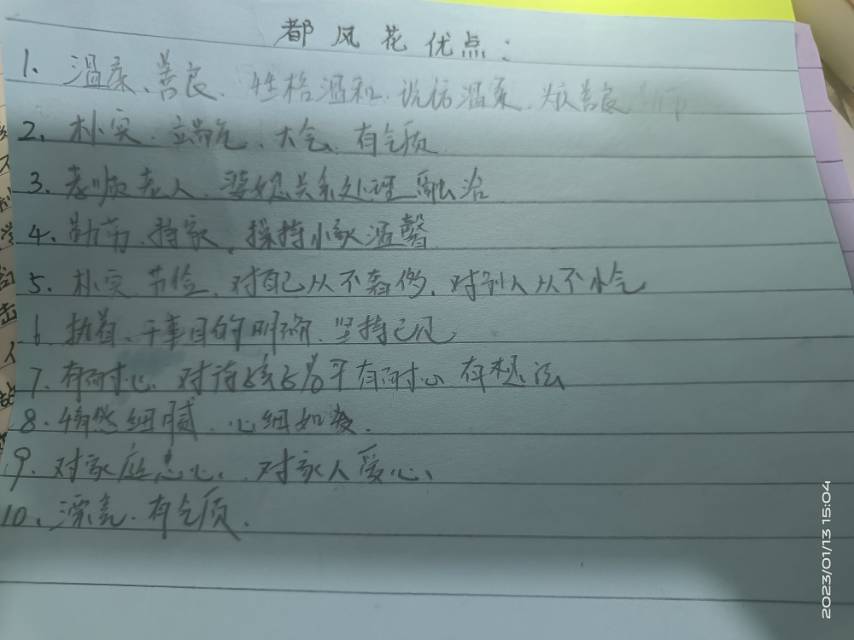 都风花优点：
1、温柔、善良、性格温和、说话温柔、
2、朴实、端庄、大气、有气质
3、孝顺老人、婆媳关系处理融洽
4、勤劳、持家、操持小家温馨
5、朴实节俭、对自己从不奢侈、对别人从不小气
6 执着、干事目的明确、坚持己见
7、有耐心、对待孩子有耐心 有想法
8、情感细腻、心细如发.
9、对家庭忠心、对家人爱心、
10、漂亮、有气质.
2023/01/13 15:04